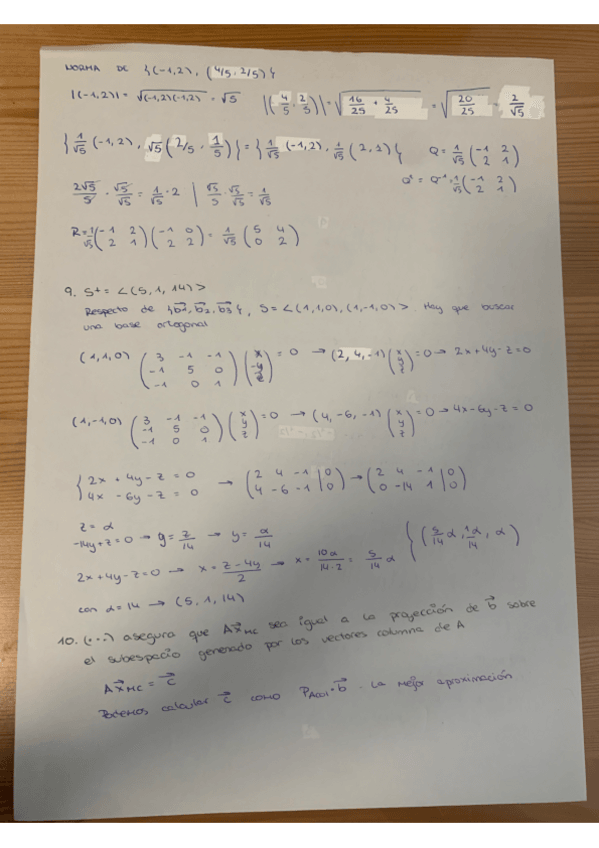 NORMA DE {(-1,2), (4/5, 2/5)}
|(-1,2)| = √(-1,2)(-1,2) = √5 |(4/5, 2/5)| = √(16/25 + 4/25) = √(20/25) = 2/√5
{1/√5 (-1,2), √5 (2/5, 1/5)} = {1/√5 (-1,2), 1/√5 (2,1)} Q = 1/√5 (-1 2 / 2 1)
Qt = Q-1 = 1/√5 (-1 2 / 2 1)
2√5/5 · √5/√5 = 1/√5 · 2 | √5/5 · √5/√5 = 1/√5
R = 1/√5 (-1 2 / 2 1) (-1 0 / 2 2) = 1/√5 (5 4 / 0 2)
9. S⊥ = <(5, 1, 14)>
Respecto de {b1, b2, b3}, S = <(1,1,0), (1,-1,0)> Hay que buscar
una base ortogonal
(1,1,0) (3 -1 -1 / -1 5 0 / -1 0 1) (x / y / z) = 0 → (2, 4, -1) (x / y / z) = 0 → 2x+4y-z=0
(1,-1,0) (3 -1 -1 / -1 5 0 / -1 0 1) (x / y / z) = 0 → (4, -6, -1) (x / y / z) = 0 → 4x-6y-z=0
{2x + 4y - z = 0 / 4x - 6y - z = 0 → (2 4 -1 | 0 / 4 -6 -1 | 0) → (2 4 -1 | 0 / 0 -14 1 | 0)
z = α
-14y+z=0 → y = z/14 → y = α/14 {(5/14 α, 1α/14, α)
2x+4y-z=0 → x = z-4y/2 → x = 10α/14·2 = 5/14 α
con α=14 → (5, 1, 14)
10. (...) asegura que AxMC sea igual a la proyección de b sobre
el subespacio generado por los vectores columna de A
AxMC = c
Podemos calcular c como PAcol·b · La mejor aproximación